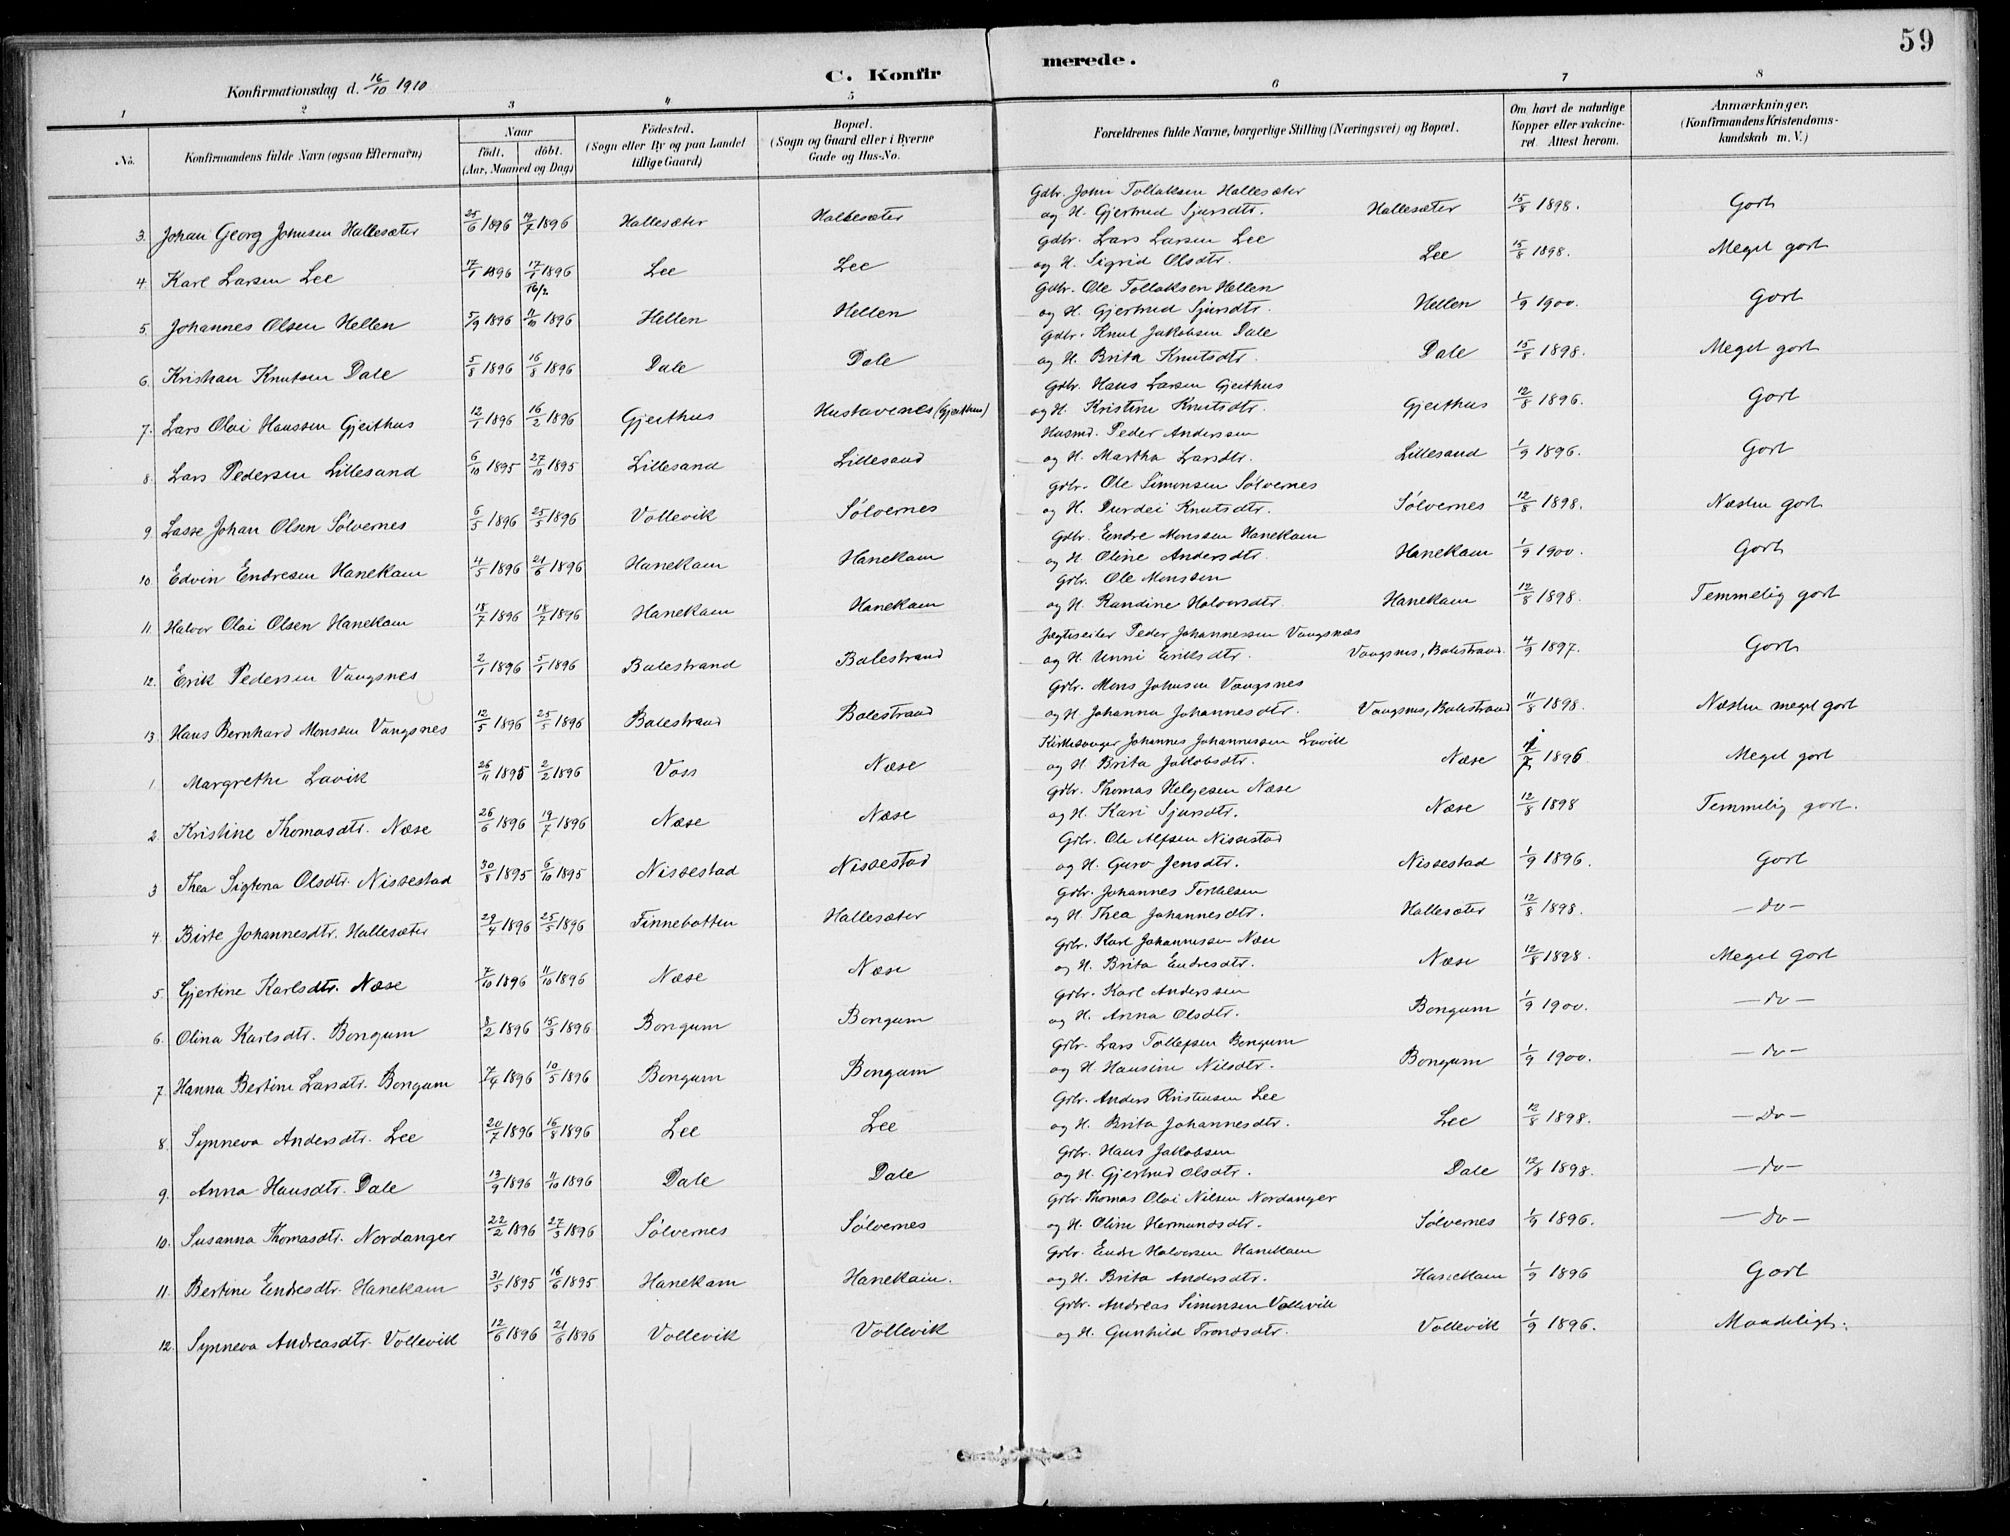 59
C. Konfirmerede.
Konfirmationsdag d. 16/10 1910
1 2 3 4 5 6 7 8
No. Konfirmandens fulde Navn (ogsaa Efternavn) Naar födt. döbt. (Aar, Maaned og Dag) Födested. (Sogn eller By og paa Landet tillige Gaard) Bopæl. (Sogn og Gaard eller i Byerne Gade og Hus-No. Forældrenes fulde Navne, borgerlige Stilling (Næringsvei) og Bopæl. Om havt de naturlige Kopper eller vakcineret. Attest herom. Anmærkninger. (Konfirmandens Kristendomskundskab m. V.)
Gdbr. John Tollaksen Hallesæter
3. Johan Georg Johnsen Hallesæter 25/6 1896 19/7 1896 Hallesæter Hallesæter og H. Gjertrud Sjursdtr. Hallesæter 15/8 1898. Godt
Gdbr. Lars Larsen Lee
4. Karl Larsen Lee 17/1 1896 17/1 1896 16/2 Lee Lee og H. Sigrid Olsdtr. Lee 15/8 1898. Meget godt
Gdbr. Ole Tollaksen Hellen
5. Johannes Olsen Hellen 5/9 1896 11/10 1896 Hellen Hellen og H. Gjertrud Sjursdtr. Hellen 1/9 1900. Godt
Gdbr. Knut Jakobsen Dale
6. Kristian Knutsen Dale 5/8 1896 16/8 1896 Dale Dale og H. Brita Knutsdtr. Dale 15/8 1898. Meget godt
Gdbr. Hans Larsen Gjeithus
7. Lars Olai Hanssen Gjeithus 12/1 1896 16/2 1896 Gjeithus Hustavenes (Gjeithus) og H. Kristine Knutsdtr. Gjeithus 12/8 1896. Godt
Husmd. Peder Anderssen
8. Lars Pedersen Lillesand 6/10 1895 27/10 1895 Lillesand Lillesand og H. Martha Larsdtr. Lillesand 1/9 1896. Godt
Gdbr. Ole Simonsen Sølvernes
9. Lasse Johan Olsen Sølvernes 6/5 1896 25/5 1896 Vollevik Sølvernes og H. Durdei Knutsdtr. Sølvernes 12/8 1898. Næsten godt
Gdbr. Endre Monssen Hanekam
10. Edvin Endresen Hanekam 4/5 1896 21/6 1896 Hanekam Hanekam og H. Oline Andersdtr. Hanekam 1/9 1900. Godt
Gdbr. Ole Monssen
11. Halvor Olai Olsen Hanekam 18/7 1896 18/7 1896 Hanekam Hanekam og H. Randine Halvorsdtr. Hanekam 12/8 1898. Temmelig godt
Jægtseiler Peder Johannessen Vangsnæs
12. Erik Pedersen Vangsnes 2/1 1896 5/1 1896 Balestrand Balestrand og H. Unni Eriksdtr. Vangsnes, Balestrand. 4/9 1897. Godt
Gdbr. Mons Johnsen Vangsnes
13. Hans Bernhard Monssen Vangsnes 12/5 1896 25/5 1896 Balestrand Balestrand og H. Johanna Johannesdtr. Vangsnes, Balestrand 11/8 1898. Næsten meget godt
Kirkesanger Johannes Johannessen Lavik
1. Margrethe Lavik 26/11 1895 2/2 1896 Voss Næse og H. Brita Jakobsdtr. Næse 1896 Meget godt
Gdbr. Thomas Helgesen Næse
2. Kristine Thomasdtr. Næse 26/6 1896 19/7 1896 Næse Næse og H. Kari Sjursdtr. Næse 12/8 1898 Temmelig godt.
Gdbr. Ole Alfsen Nissestad
3 Thea Sigtona Olsdtr. Nissestad 30/8 1895 6/10 1895 Nissestad Nissestad og H. Guro Jensdtr. Nissestad 1/9 1896. Godt
Gdbr. Johannes Terkelsen
4. Birte Johannesdtr. Hallesæter 29/4 1896 25/5 1896 Finnebotten Hallesæter og H. Thea Johannesdtr. Hallesæter 12/8 1898. — do —
Gdbr. Karl Johannessen Næse
5. Gjertine Karlsdtr. Næse 7/10 1896 11/10 1896 Næse Næse og H. Brita Endresdtr. Næse 12/8 1898. Meget godt
Gdbr. Karl Anderssen
6. Olina Karlsdtr. Bongum 8/2 1896 15/3 1896 Bongum Bongum og H. Anna Olsdtr. Bongum 1/9 1900. — do —
Gdbr. Lars Tollefsen Bongum
7. Hanna Bertine Larsdtr. Bongum 7/4 1896 10/5 1896 Bongum Bongum og H. Hansine Nilsdtr. Bongum 1/9 1900. — do —
Gdbr. Anders Kristensen Lee
8. Synneva Andersdtr. Lee 20/7 1896 16/8 1896 Lee Lee og H. Brita Johannesdtr. Lee 12/8 1898. — do —
Gdbr. Hans Jakobsen
9. Anna Hansdtr. Dale 13/9 1896 11/10 1896 Dale Dale og H. Gjertrud Olsdtr. Dale 12/8 1898. — do —
Gdbr. Thomas Olai Nilsen Nordanger
10. Susanna Thomasdtr. Nordanger 22/2 1896 27/3 1896 Sølvernes Sølvernes og H. Oline Hermundsdtr. Sølvernes 1/9 1896. — do —
Gdbr. Endre Halvorsen Hanekam
11. Bertine Endresdtr. Hanekam 31/5 1895 16/6 1895 Hanekam Hanekam. og H. Brita Andersdtr. Hanekam 1/9 1896 Godt
Gdbr. Andreas Simonsen Vollevik
12. Synneva Andreasdtr. Vollevik 12/6 1896 21/6 1896 Vollevik Vollevik og H. Gunhild Trondsdtr. Vollevik 1/9 1896. Maadeligt.